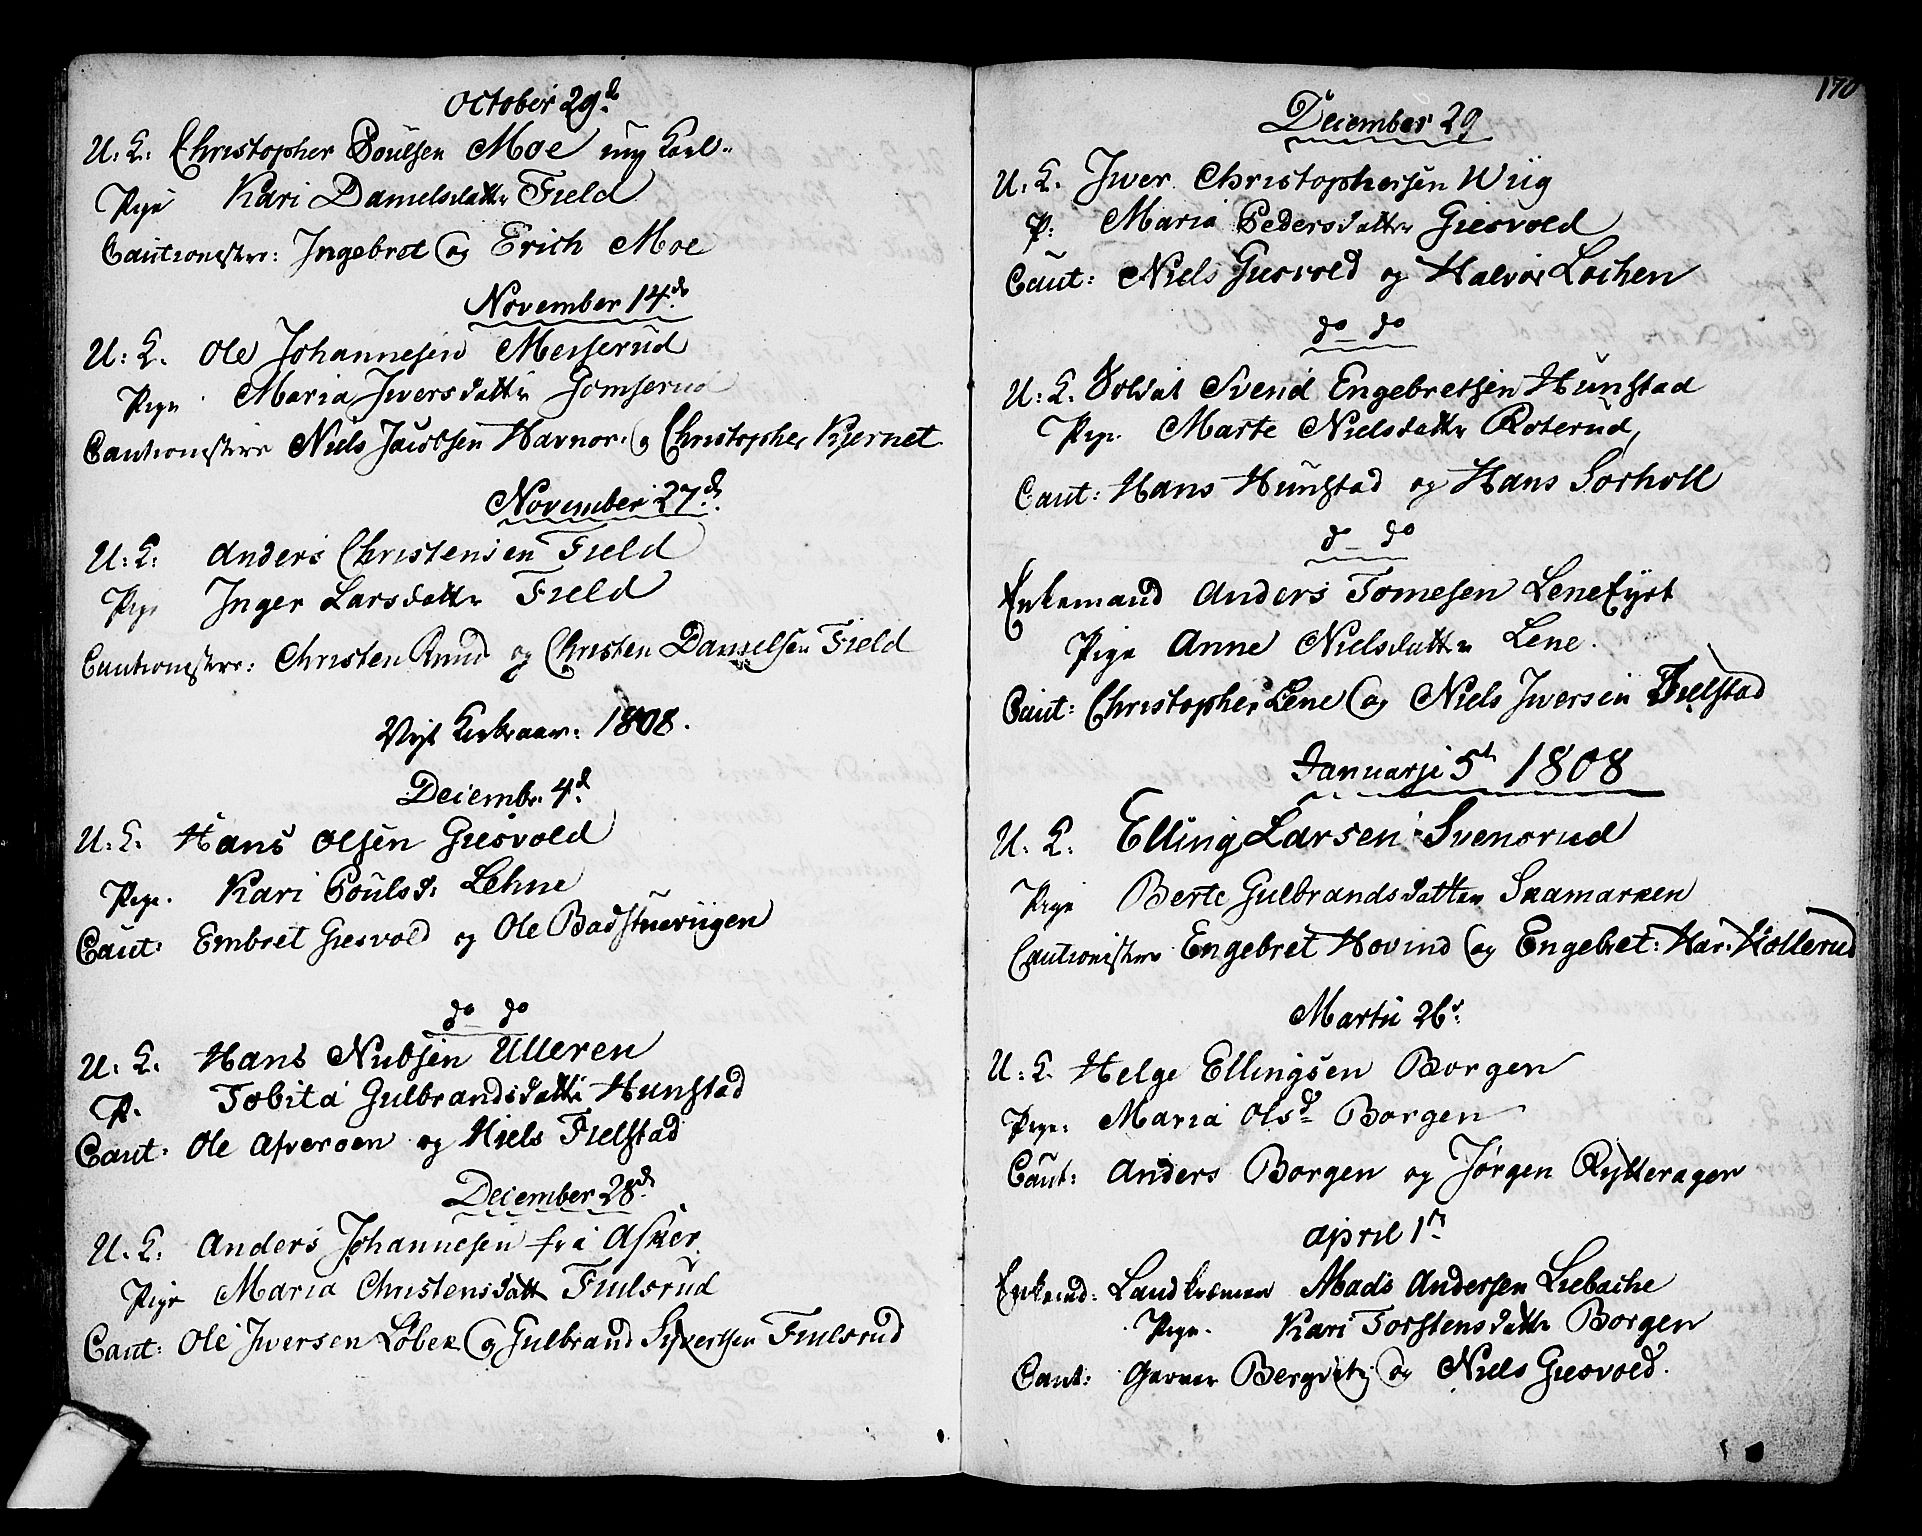 October 29d.
U. K: Christopher Poulsen Moe ung Karl
Pige Kari Danielsdatter Field
Cautionister: Ingebret og Erich Moe
November 14d.
U: K. Ole Johannesen Messerud
Pige Maria Iversdatter Gomserud
Cautionister Niels Jacobsen Havnor og Christopher Kjernet
November 27d.
U: K: Anders Christensen Field
Pige Inger Larsdatter Field
Cautionister: Christen Ruud og Christen Danielsen Field
Nyt Kirkeaar: 1808.
Decembr. 4d.
U. K. Hans Olsen Giesvold
Pige. Kari Poulsd: Lehne
Caut: Embret Giesvold og Ole Badstueriigen
do do
U. K. Hans Nielsen Ulleren
P. Tobita Gulbrandsdatter Hunstad
Caut: Ole Afveroen og Niels Fielstad
December 28d.
U. K: Anders Johannesen fra Asker
Pige Maria Christensdatter Fiulsrud
Caut: Ole Iversen Löben og Gulbrand Sivertsen Fiulsrud
170
December 29
U. K. Iver Christophersen Wiig
P: Maria Pedersdatter Giesvold
Caut: Niels Giesvold og Halvor Lochen
do do
U: K. Soldat Svend Engebretsen Hunstad
Pige. Marte Nielsdatter Roterud,
Caut: Hans Hunstad og Hans Sorholl
do do
Enkemand Anders Tomesen Lene
Pige Anne Nielsdatter Lene.
Caut: Christopher Lene og Niels Iversen Fielstad
Januarji 5t 1808
U. K. Elling Larsen Svensrud
Pige Berte Gulbrandsdatter Skamarken
Cautionister Engebret Hovind og Engebret: Har: Kollerud
Martii 26d.
U: K Helge Ellingsen Borgen
Pige: Maria Olsd. Borgen
Caut: Anders Borgen og Jörgen Rytterager
April 1
Enkemd: Landkræmer Mads Andersen Liebache
Pige. Kari Torstensdatter Borgen
Caut: Garver og Niels Giesvold.